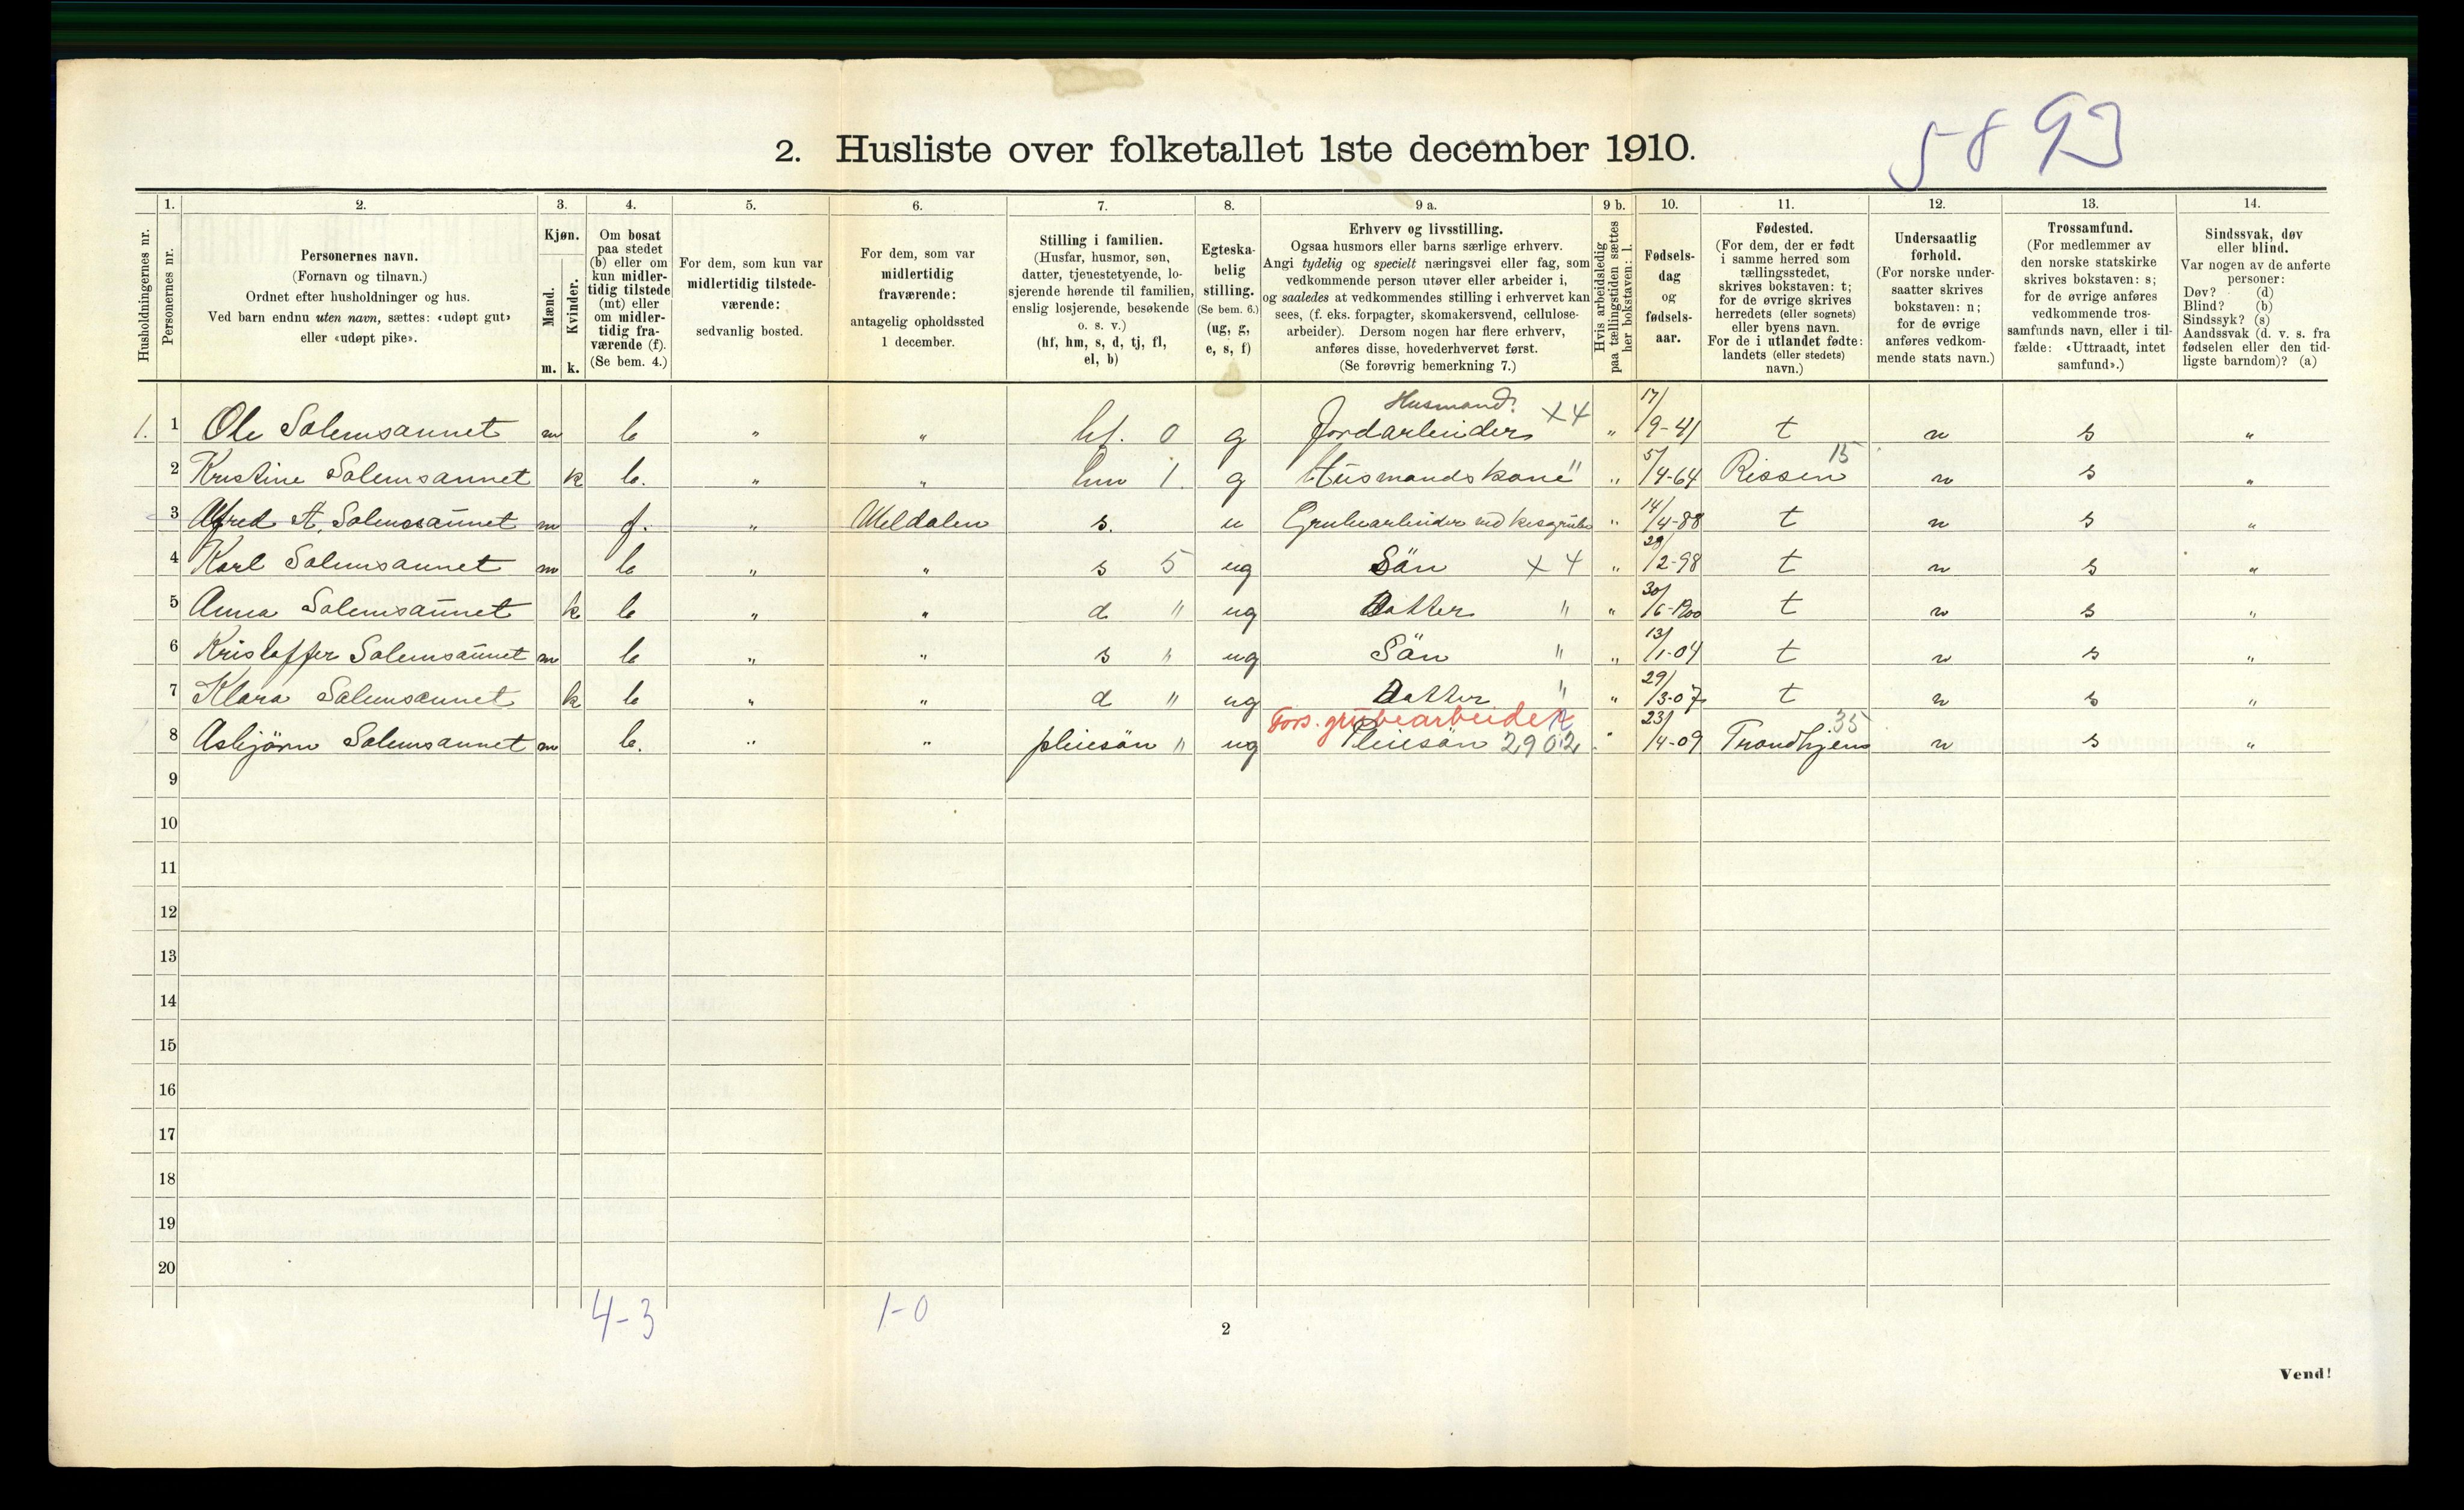 5893
2. Husliste over folketallet 1ste december 1910.
1. 2. 3. 4. 5. 6. 7. 8. 9 a. 9 b. 10. 11. 12. 13. 14.
Husholdningernes nr.
Personernes nr.
Personernes navn.
(Fornavn og tilnavn.)
Ordnet efter husholdninger og hus.
Ved barn endnu uten navn, sættes: «udøpt gut»
eller «udøpt pike».
Kjøn.
Mænd.
Kvinder.
m. k.
Om bosat
paa stedet
(b) eller om
kun midler-
tidig tilstede
(mt) eller
om midler-
tidig fra-
værende (f).
(Se bem. 4.)
For dem, som kun var
midlertidig tilstede-
værende:
sedvanlig bosted.
For dem, som var
midlertidig
fraværende:
antagelig opholdssted
1 december.
Stilling i familien.
(Husfar, husmor, søn,
datter, tjenestetyende, lo-
sjerende hørende til familien,
enslig losjerende, besøkende
o. s. v.)
(hf, hm, s, d, tj, fl,
el, b)
Egteska-
belig
stilling.
(Se bem. 6.)
(ug, g,
e, s, f)
Erhverv og livsstilling.
Ogsaa husmors eller barns særlige erhverv.
Angi tydelig og specielt næringsvei eller fag, som
vedkommende person utøver eller arbeider i,
og saaledes at vedkommendes stilling i erhvervet kan
sees, (f. eks. forpagter, skomakersvend, cellulose-
arbeider). Dersom nogen har flere erhverv,
anføres disse, hovederhvervet først.
(Se forøvrig bemerkning 7.)
Hvis arbeidsledig
paa tællingstiden sættes
her bokstaven: l.
Fødsels-
dag
og
fødsels-
aar.
Fødested.
(For dem, der er født
i samme herred som
tællingsstedet,
skrives bokstaven: t;
for de øvrige skrives
herredets (eller sognets)
eller byens navn.
For de i utlandet fødte:
landets (eller stedets)
navn.)
Undersaatlig
forhold.
(For norske under-
saatter skrives
bokstaven: n;
for de øvrige
anføres vedkom-
mende stats navn.)
Trossamfund.
(For medlemmer av
den norske statskirke
skrives bokstaven: s;
for de øvrige anføres
vedkommende tros-
samfunds navn, eller i til-
fælde: «Uttraadt, intet
samfund».)
Sindssvak, døv
eller blind.
Var nogen av de anførte
personer:
Døv? (d)
Blind? (b)
Sindssyk? (s)
Aandssvak (d. v. s. fra
fødselen eller den tid-
ligste barndom)? (a)
Husmand. x4
1. 1 Ole Solemsaunet m b " " hf. 0 g Jordarbeider " 17/9-41 t n s "
2 Kristine Solemsaunet k b. " " hm 1. g Husmandskone " " 5/4-64 Rissen 15 n s "
3 Alfred A. Solemsaunet m f. " Meldalen s. u Grubearbeider ved kisgrube " 14/4-88 t n s "
4 Karl Solemsaunet m b " " s 5 ug Sön x4 " 28/2-98 t n s "
5 Anna Solemsaunet k b " " d " ug Datter " " 30/6-1900 t n s "
6 Kristoffer Solemsaunet m b " " s " ug Sön " " 13/1-04 t n s "
7 Klara Solemsaunet k b " " d " ug Datter " " 29/3-07 t n s "
Fors. grubearbeider
8 Asbjörn Solemsaunet m b. " " pleiesön " ug Pleiesön 2902 " 23/4-09 Trondhjem 35 n s "
9
10
11
12
13
14
15
16
17
18
19
20
4-3 1-0
2
Vend!